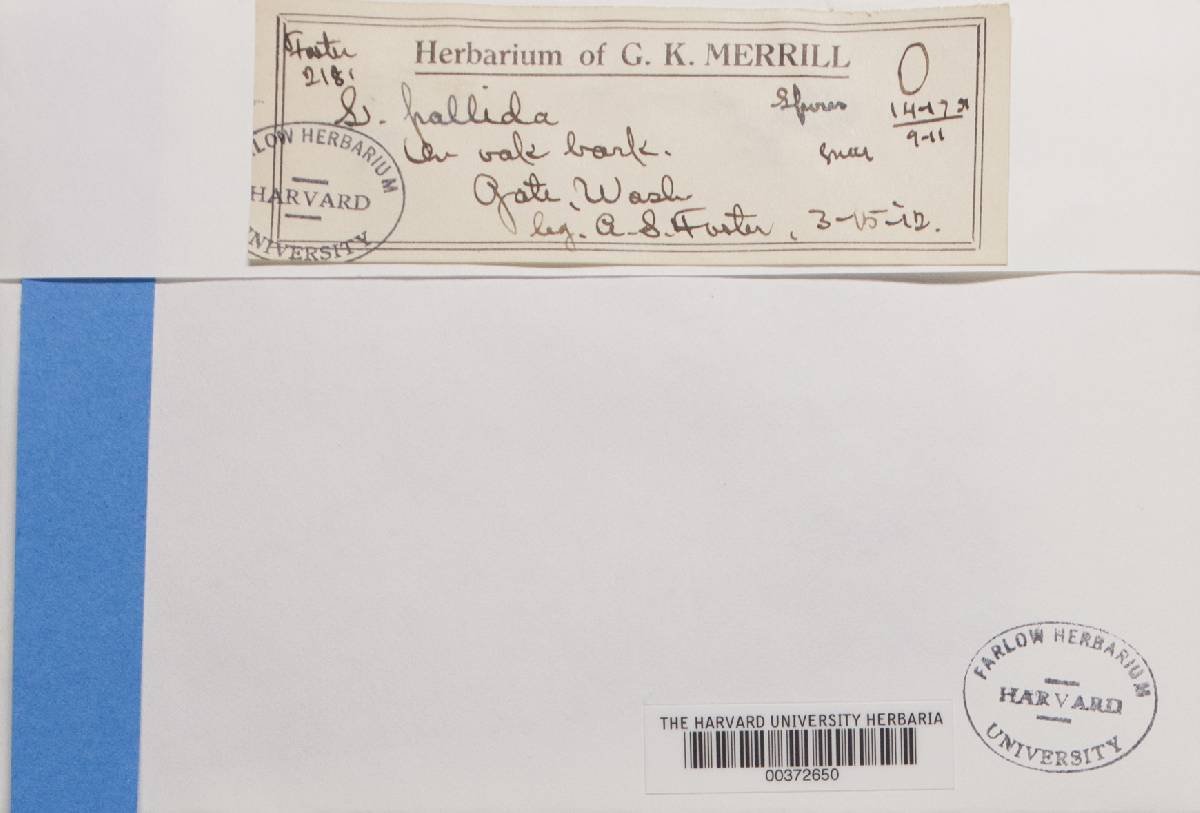 Foster
218
Herbarium of G. K. MERRILL
L. pallida
Spores
14-17
9-11
On oak bark.
Gate, Wash
leg. A. S. Foster, 3-15-12.
FARLOW HERBARIUM
HARVARD
UNIVERSITY
FARLOW HERBARIUM
HARVARD
UNIVERSITY
THE HARVARD UNIVERSITY HERBARIA
00372650